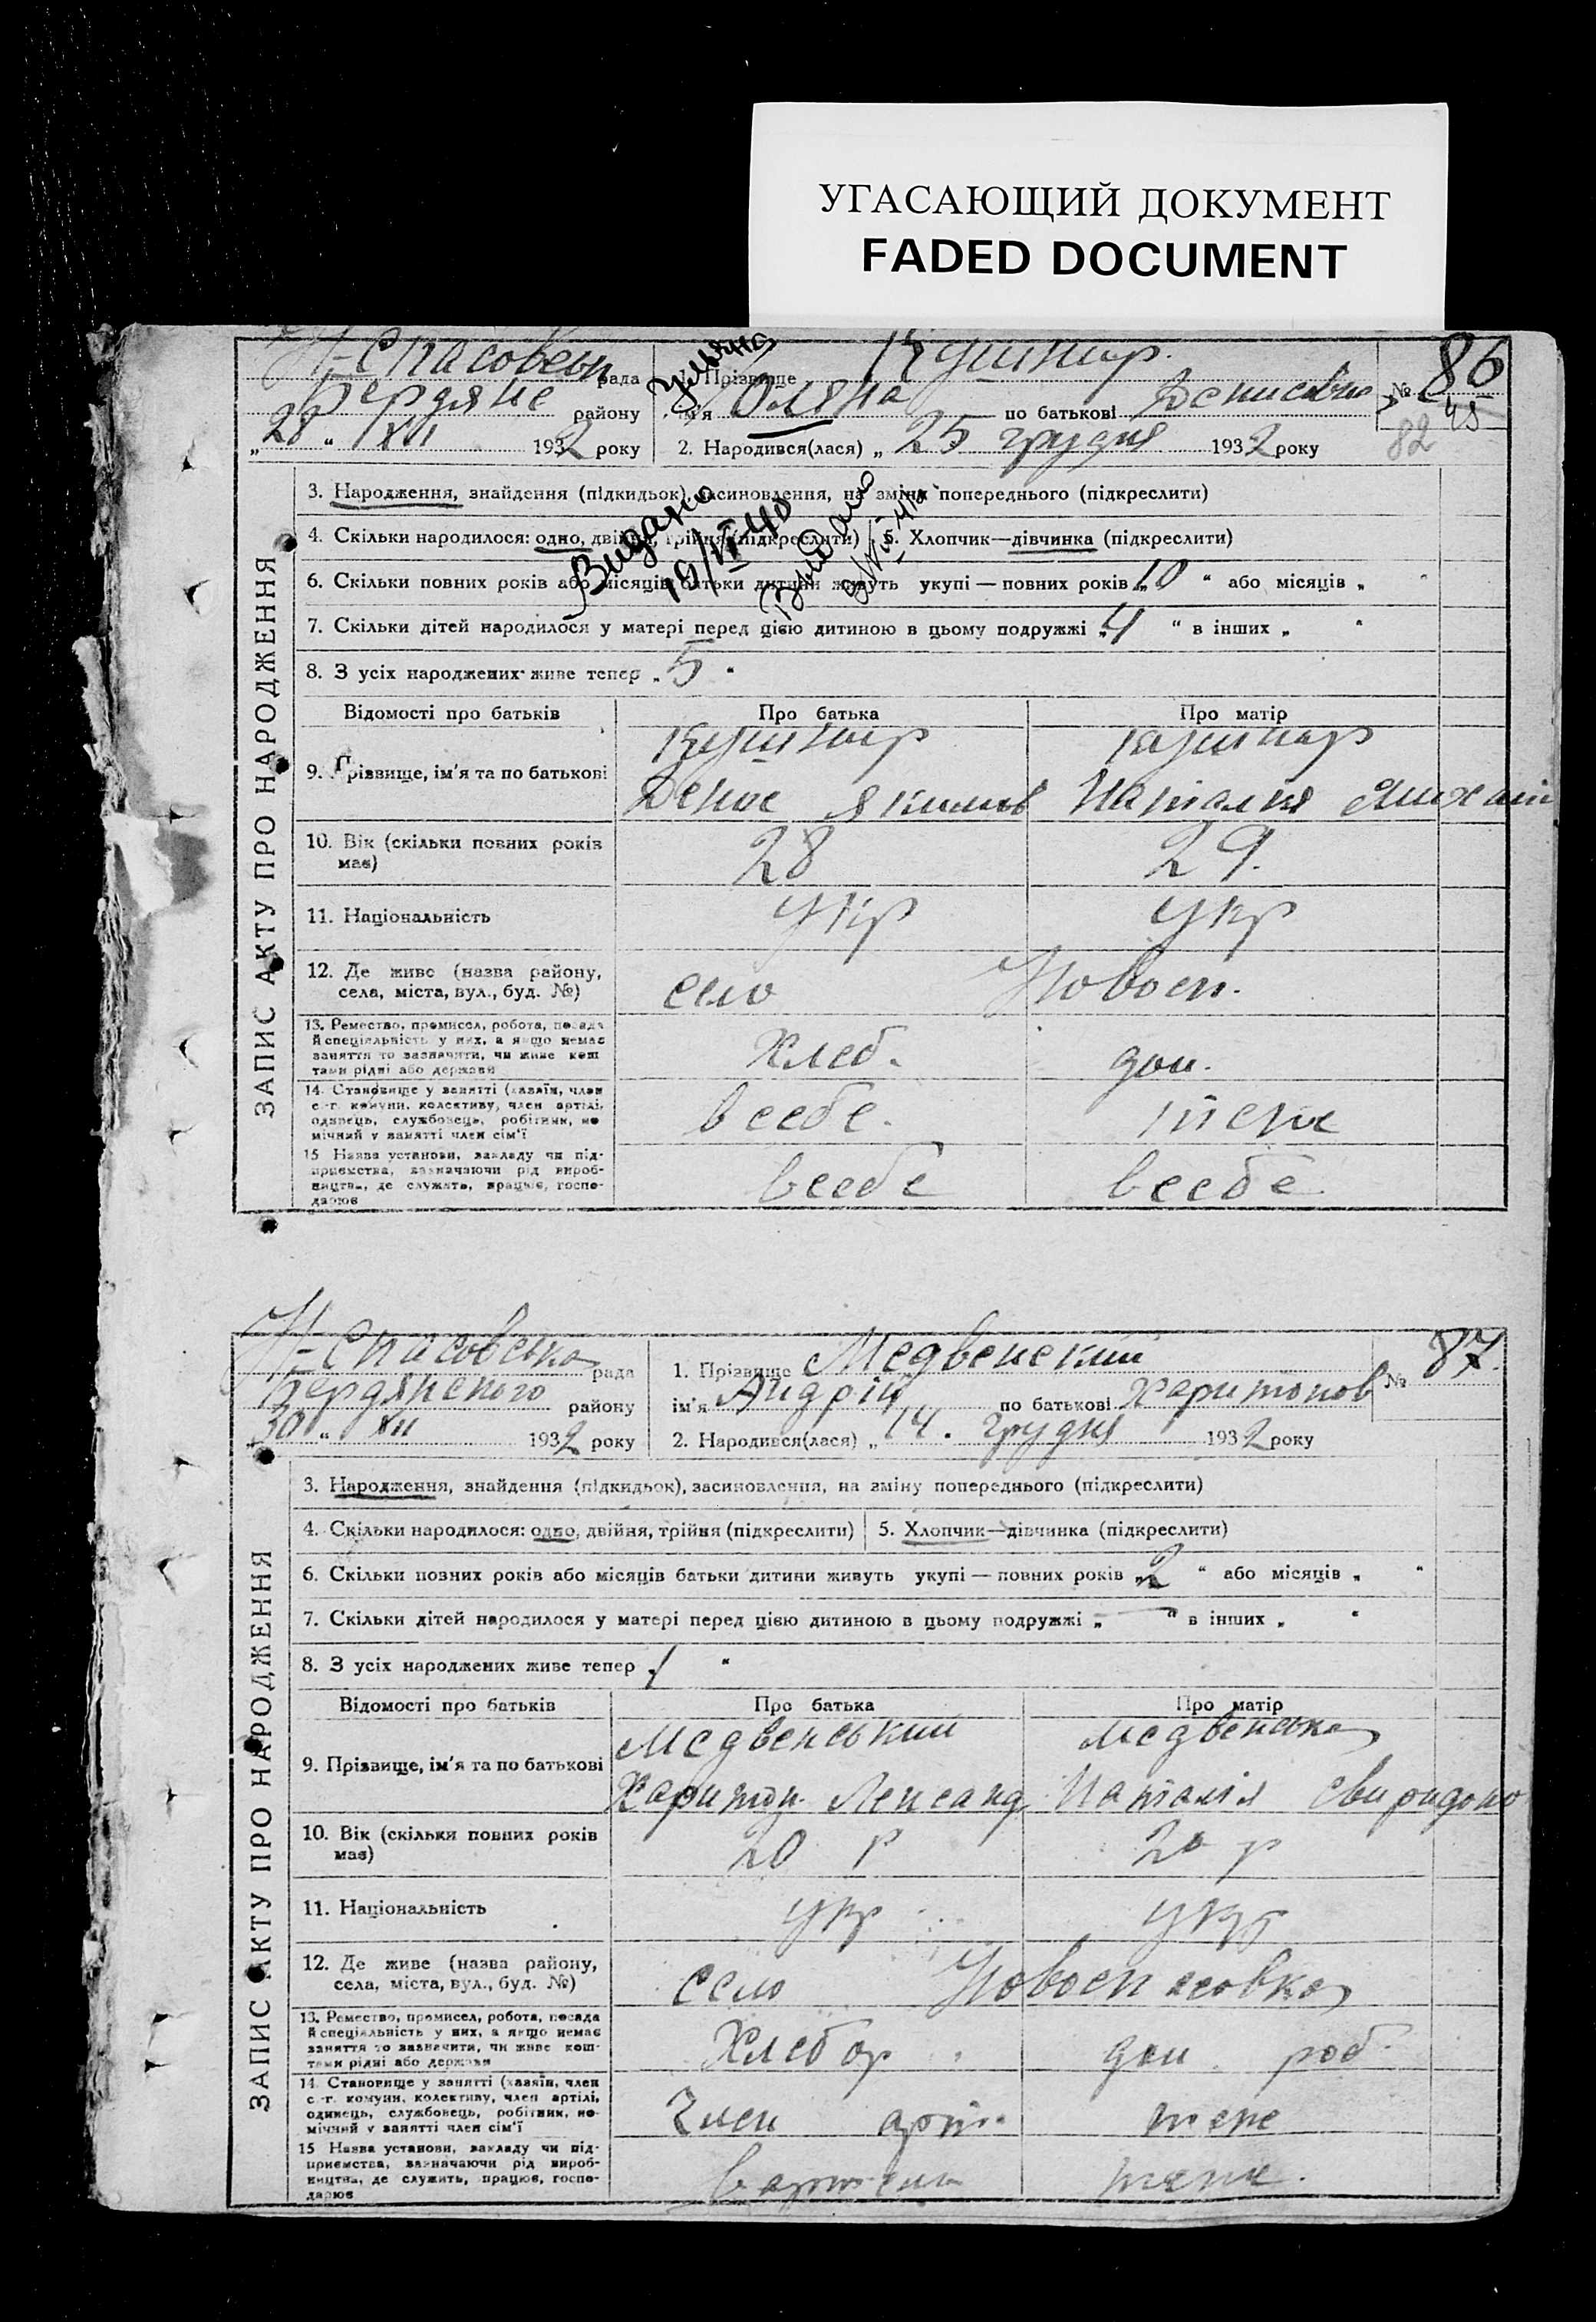 УГАСАЮЩИЙ ДОКУМЕНТ
FADED DOCUMENT
ЗАПИС АКТУ ПРО НАРОДЖЕННЯ
Н-Спасовськ рада
Бердянс району
„28“ XII 1932 року
1. Прізвище Кушнір
Уляна
ім'я Оляна по батькові Денисовна
2. Народився(лася) „25 грудня 1932 року
№ 86
45
82
3. Народження, знайдення (підкидьок), засиновлення, на зміну попереднього (підкреслити)
4. Скільки народилося: одно, двійня, трійня (підкреслити) 5. Хлопчик—дівчинка (підкреслити)
Видано
19/VI 40
Видано
6. Скільки повних років або місяців батьки дитини живуть укупі — повних років „10“ або місяців „ “
7. Скільки дітей народилося у матері перед цією дитиною в цьому подружжі „4“ в інших „ “
8. З усіх народжених живе тепер „5“
Відомості про батьків Про батька Про матір
9. Прізвище, ім'я та по батькові Кушнір Кушнар
Денис Якимов Наталія Михайл
10. Вік (скільки повних років має) 28 29.
11. Національність Укр Укр
12. Де живе (назва району, села, міста, вул., буд. №) село Новосп.
13. Ремество, промисел, робота, посада й спеціяльність у них, а якщо немає заняття то зазначити, чи живе коштами рідні або держави Хлеб. дом.
14. Становище у занятті (хазяїн, член с.-г. комуни, колективу, член артілі, одинець, службовець, робітник, помічний у занятті член сім'ї в себе. теж
15 Назва установи, закладу чи підприємства, зазначаючи рід виробництва, де служить, працює, господарює в себе в себе
ЗАПИС АКТУ ПРО НАРОДЖЕННЯ
Н-Спасовська рада
Бердянского району
„30“ XII 1932 року
1. Прізвище Медвенский
ім'я Андрій по батькові Харитонов
2. Народився(лася) „14. грудня 1932 року
№ 87.
3. Народження, знайдення (підкидьок), засиновлення, на зміну попереднього (підкреслити)
4. Скільки народилося: одно, двійня, трійня (підкреслити) 5. Хлопчик—дівчинка (підкреслити)
6. Скільки повних років або місяців батьки дитини живуть укупі — повних років „2“ або місяців „ “
7. Скільки дітей народилося у матері перед цією дитиною в цьому подружжі „—“ в інших „ “
8. З усіх народжених живе тепер „1“
Відомості про батьків Про батька Про матір
9. Прізвище, ім'я та по батькові Медвенський Медвенська
Харитон. Лександ Наталія Свиридоно
10. Вік (скільки повних років має) 20 р 20 р
11. Національність укр укр
12. Де живе (назва району, села, міста, вул., буд. №) село Новоспасовка
13. Ремество, промисел, робота, посада й спеціяльність у них, а якщо немає заняття то зазначити, чи живе коштами рідні або держави Хлебор дом. роб.
14. Становище у занятті (хазяїн, член с.-г. комуни, колективу, член артілі, одинець, службовець, робітник, помічний у занятті член сім'ї Член арт. теж
15 Назва установи, закладу чи підприємства, зазначаючи рід виробництва, де служить, працює, господарює в артели теж.